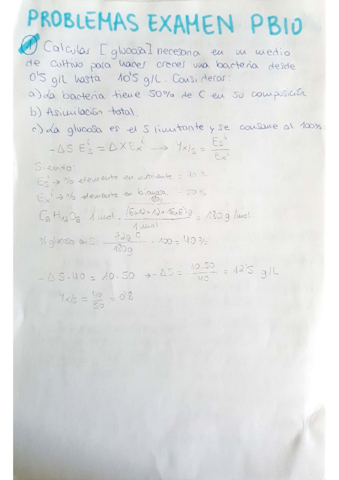 PROBLEMAS EXAMEN PBIO
1) Calcular [glucosa] necesaria en un medio
de cultivo para hacer crecer una bacteria desde
0'5 g/L hasta 10'5 g/L. Considerar:
a) La bacteria tiene 50% de C en su composición
b) Asimilación total.
c) La glucosa es el S limitante y se consume al 100%
-ΔS Es^i = ΔX Ex^i → Yx/s = Es^i / Ex^i
Siendo:
Es^i → % elemento en nutriente = 40%
Ex^i → % elemento en biomasa = 50%
C6H12O6 1 mol · (6×12+12+16×6)g / 1 mol = 180 g/mol
% glucosa en S: 72g C / 180g · 100 = 40%
-ΔS·40 = 10·50 → -ΔS = 10·50 / 40 = 12'5 g/L
Yx/s = 40 / 50 = 0'8